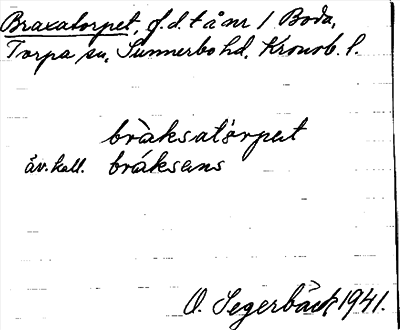 Braxatorpet, f.d. t å nr 1 Boda,
Torpa sn, Sunnerbo hd, Kronob. l.
bràksatàrpet
äv. kall. bráksens
O. Segerbäck 1941.